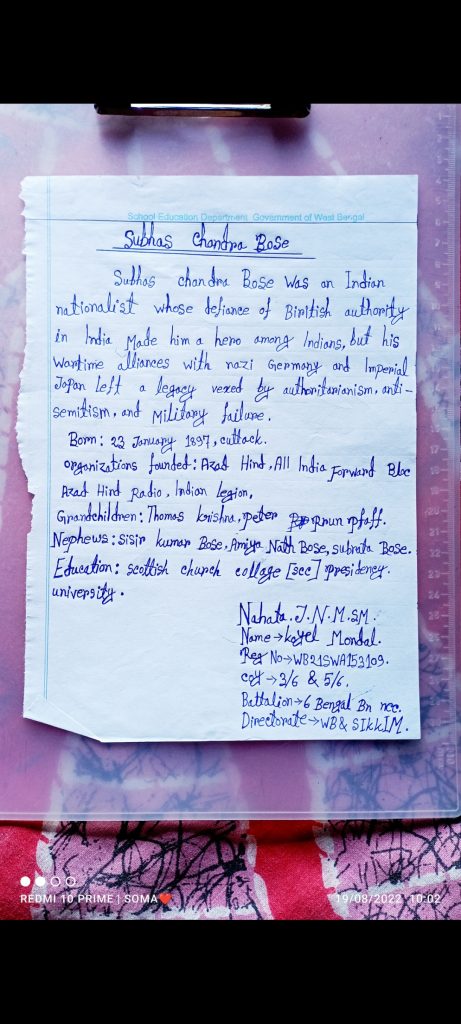 School Education Department, Government of West Bengal
Subhas Chandra Bose
Subhas chandra Bose was an Indian
nationalist whose defiance of Biritish authority
in India Made him a hero among Indians, but his
wartime alliances with nazi Germany and Imperial
Japan Left a legacy vexed by authoritarianism, anti-
semitism, and Military failure.
Born: 23 January 1897, cuttack.
organizations founded: Azad Hind, All India Forward Bloc
Azad Hind Radio, Indian legion,
Grandchildren: Thomas krishna, peter Arun pfaff.
Nephews: sisir kumar Bose, Amiya Nath Bose, subrata Bose.
Education: scottish church collage [scc] presidency.
university.
Nahata. J.N.M.SM.
Name → koyel Mondal.
Reg No → WB21SWA153109.
coy → 3/6 & 5/6.
Battalion → 6 Bengal Bn ncc.
Directorate → WB & SIKKIM.
REDMI 10 PRIME | SOMA❤
19/08/2022 10:02